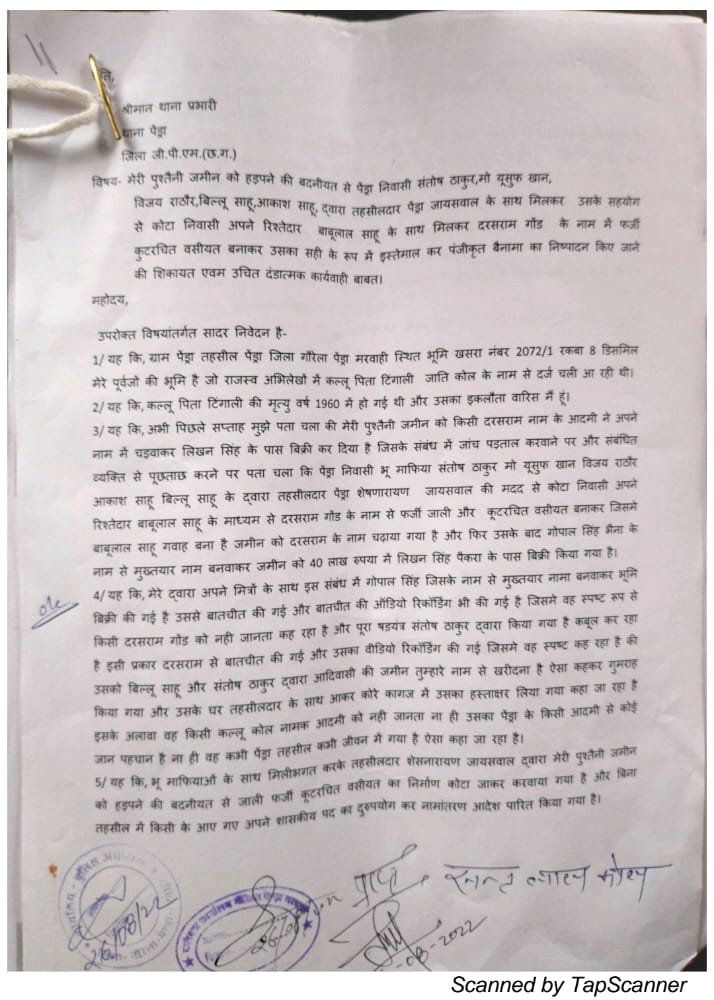 ति,
श्रीमान थाना प्रभारी
थाना पेंड्रा
जिला जी.पी.एम.(छ.ग.)
विषय- मेरी पुश्तैनी जमीन को हड़पने की बदनीयत से पेंड्रा निवासी संतोष ठाकुर,मो यूसुफ खान,
विजय राठौर,बिल्लू साहू,आकाश साहू, द्वारा तहसीलदार पेंड्रा जायसवाल के साथ मिलकर उसके सहयोग
से कोटा निवासी अपने रिश्तेदार बाबूलाल साहू के साथ मिलकर दरसराम गोंड के नाम में फर्जी
कुटरचित वसीयत बनाकर उसका सही के रूप में इस्तेमाल कर पंजीकृत बैनामा का निष्पादन किए जाने
की शिकायत एवम उचित दंडात्मक कार्यवाही बाबत।
महोदय,
उपरोक्त विषयांतर्गत सादर निवेदन है-
1/ यह कि, ग्राम पेंड्रा तहसील पेंड्रा जिला गौरेला पेंड्रा मरवाही स्थित भूमि खसरा नंबर 2072/1 रकबा 8 डिसमिल
मेरे पूर्वजों की भूमि है जो राजस्व अभिलेखों में कल्लू पिता टिंगाली जाति कोल के नाम से दर्ज चली आ रही थी।
2/ यह कि, कल्लू पिता टिंगाली की मृत्यु वर्ष 1960 में हो गई थी और उसका इकलौता वारिस मैं हूं।
3/ यह कि, अभी पिछले सप्ताह मुझे पता चला की मेरी पुश्तैनी जमीन को किसी दरसराम नाम के आदमी ने अपने
नाम में चड़वाकर लिखन सिंह के पास बिक्री कर दिया है जिसके संबंध में जांच पड़ताल करवाने पर और संबंधित
व्यक्ति से पूछताछ करने पर पता चला कि पेंड्रा निवासी भू माफिया संतोष ठाकुर मो यूसुफ खान विजय राठौर
आकाश साहू बिल्लू साहू के द्वारा तहसीलदार पेंड्रा शेषणारायण जायसवाल की मदद से कोटा निवासी अपने
रिश्तेदार बाबूलाल साहू के माध्यम से दरसराम गोंड के नाम से फर्जी जाली और कूटरचित वसीयत बनाकर जिसमे
बाबूलाल साहू गवाह बना है जमीन को दरसराम के नाम चढ़ाया गया है और फिर उसके बाद गोपाल सिंह भैना के
नाम से मुख्तयार नाम बनवाकर जमीन को 40 लाख रुपया में लिखन सिंह पैकरा के पास बिक्री किया गया है।
4/ यह कि, मेरे द्वारा अपने मित्रों के साथ इस संबंध में गोपाल सिंह जिसके नाम से मुख्तयार नामा बनवाकर भूमि
बिक्री की गई है उससे बातचीत की गई और बातचीत की ऑडियो रिकॉर्डिंग भी की गई है जिसमे वह स्पष्ट रूप से
किसी दरसराम गोंड को नही जानता कह रहा है और पूरा षडयंत्र संतोष ठाकुर द्वारा किया गया है कबूल कर रहा
है इसी प्रकार दरसराम से बातचीत की गई और उसका वीडियो रिकॉर्डिंग की गई जिसमे वह स्पष्ट कह रहा है की
उसको बिल्लू साहू और संतोष ठाकुर द्वारा आदिवासी की जमीन तुम्हारे नाम से खरीदना है ऐसा कहकर गुमराह
किया गया और उसके घर तहसीलदार के साथ आकर कोरे कागज में उसका हस्ताक्षर लिया गया कहा जा रहा है
इसके अलावा वह किसी कल्लू कोल नामक आदमी को नही जानता ना ही उसका पेंड्रा के किसी आदमी से कोई
जान पहचान है ना ही वह कभी पेंड्रा तहसील कभी जीवन में गया है ऐसा कहा जा रहा है।
5/ यह कि, भू माफियाओं के साथ मिलीभगत करके तहसीलदार शेसनारायण जायसवाल द्वारा मेरी पुश्तैनी जमीन
को हड़पने की बदनीयत से जाली फर्जी कूटरचित वसीयत का निर्माण कोटा जाकर करवाया गया है और बिना
तहसील में किसी के आए गए अपने शासकीय पद का दुरुपयोग कर नामांतरण आदेश पारित किया गया है।
26/08/22
Scanned by TapScanner